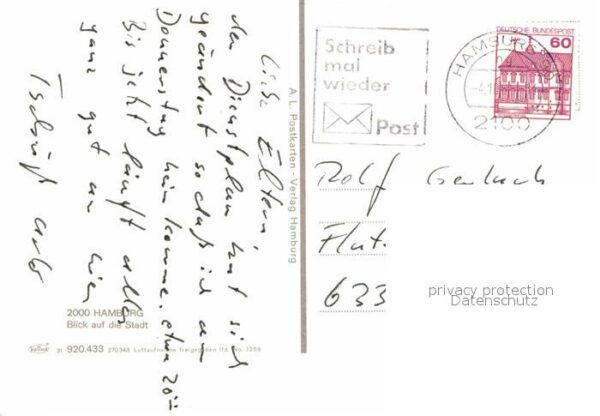 Liebe Eltern,
der Dienstplan hat sich
geändert so daß ich am
Donnerstag heim komme. etwa 20
Bis jetzt läuft alles
ganz gut an hier
Tschüß
A. L. Postkarten - Verlag Hamburg
2000 HAMBURG
Blick auf die Stadt
31 920.433 270345 Luftaufnahme freigegeben lfd. No. 1256
Schreib
mal
wieder
Post
HAMBURG
2100
DEUTSCHE BUNDESPOST
60
Rolf Gerlach
633
privacy protection
Datenschutz